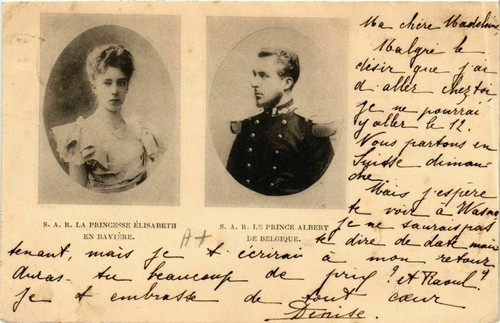 Ma chère Madeleine,
Malgré le
désir que j'ai
d'aller chez toi,
je ne pourrai
y aller le 12.
Nous partons en
Suisse diman-
che.
Mais j'espère
te voir à
je ne saurais pas
te dire de date main
tenant, mais je t'écrirai à mon retour
Auras-tu beaucoup de prix? et Raoul?
Je t embrasse de tout cœur
Denise.
S. A. R. LA PRINCESSE ÉLISABETH
EN BAVIÈRE.
S. A. R. LE PRINCE ALBERT
DE BELGIQUE.